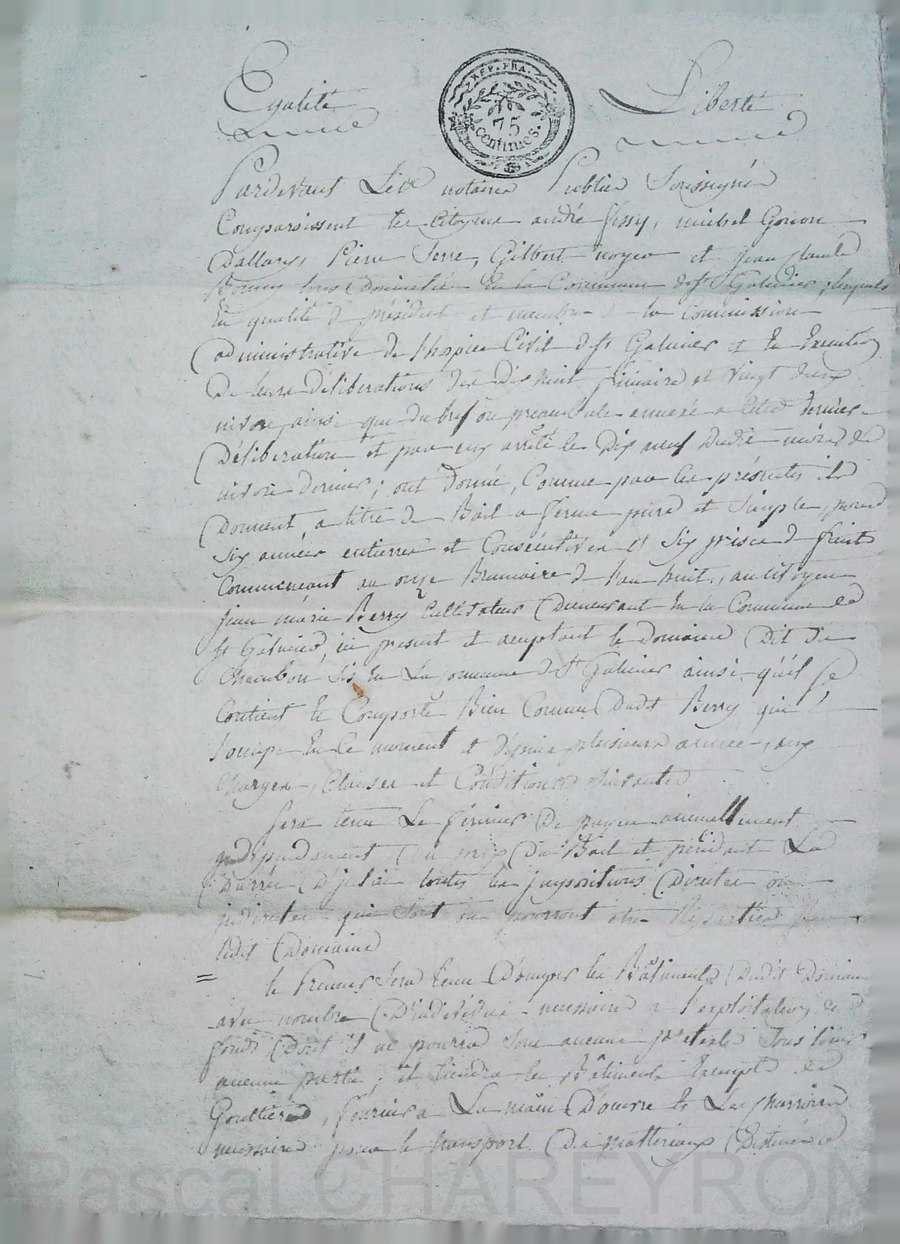 Egalité Liberté
REP. FRA.
75
centimes.
Pardevant Les notaires Publics Soussignés
Comparoissent les Citoyens andré fessy, michel Goiron
Dallary, Pierre Serre, Gilbert noyer et jean claude
tous Domiciliés En la Commune de St Galmier, lesquels
En qualité de président et membres de la Commission
administrative de l'hospice Civil de St Galmier et En Execution
De leurs deliberations des Dix huit frimaire et vingt deux
nivose, ainsi que du annexé a cette derniere
Déliberation et par eux arrêté le Dix neuf Dudit mois de
nivose dernier; ont donné, Comme par les présentes ils
Donnent, a titre de Bail a ferme pure et Simple, pour
Six années entieres et Consécutives et Six prises de fruits
Commencant au onze Brumaire de l'an huit, au citoyen
jean marie Berry Cultivateur Demeurant En la Commune de
St Galmier, ici present et acceptant le domaine Dit de
Chambon, sis En La Commune de St Galmier ainsi qu'il se
Contient et Comporte Bien Connu Dudit Berry qui
l'occupe En ce moment et depuis plusieurs années, aux
Charges, Clauses et Conditions suivantes
Sera tenu Le fermier De payer annuellement
independament du prix Du Bail et pendant La
Durée D'jcelui toutes les jmpositions Directes ou
jndirectes qui sont ou pourront etre Réparties sur
ledit Domaine
= le Preneur sera tenu D'occuper les Bâtiments Dudit Domaine
avec nombre D'individus necessaire a l'exploitation des
fonds Dont il ne pourra sous aucun pretexte Sous louer
aucune partie; et tiendra les Bâtiments Exempts de
Gouttieres, fournira La main D'œuvre et Les Charrois
necessaires pour le transport De matteriaux Distance de
Pascal CHAREYRON